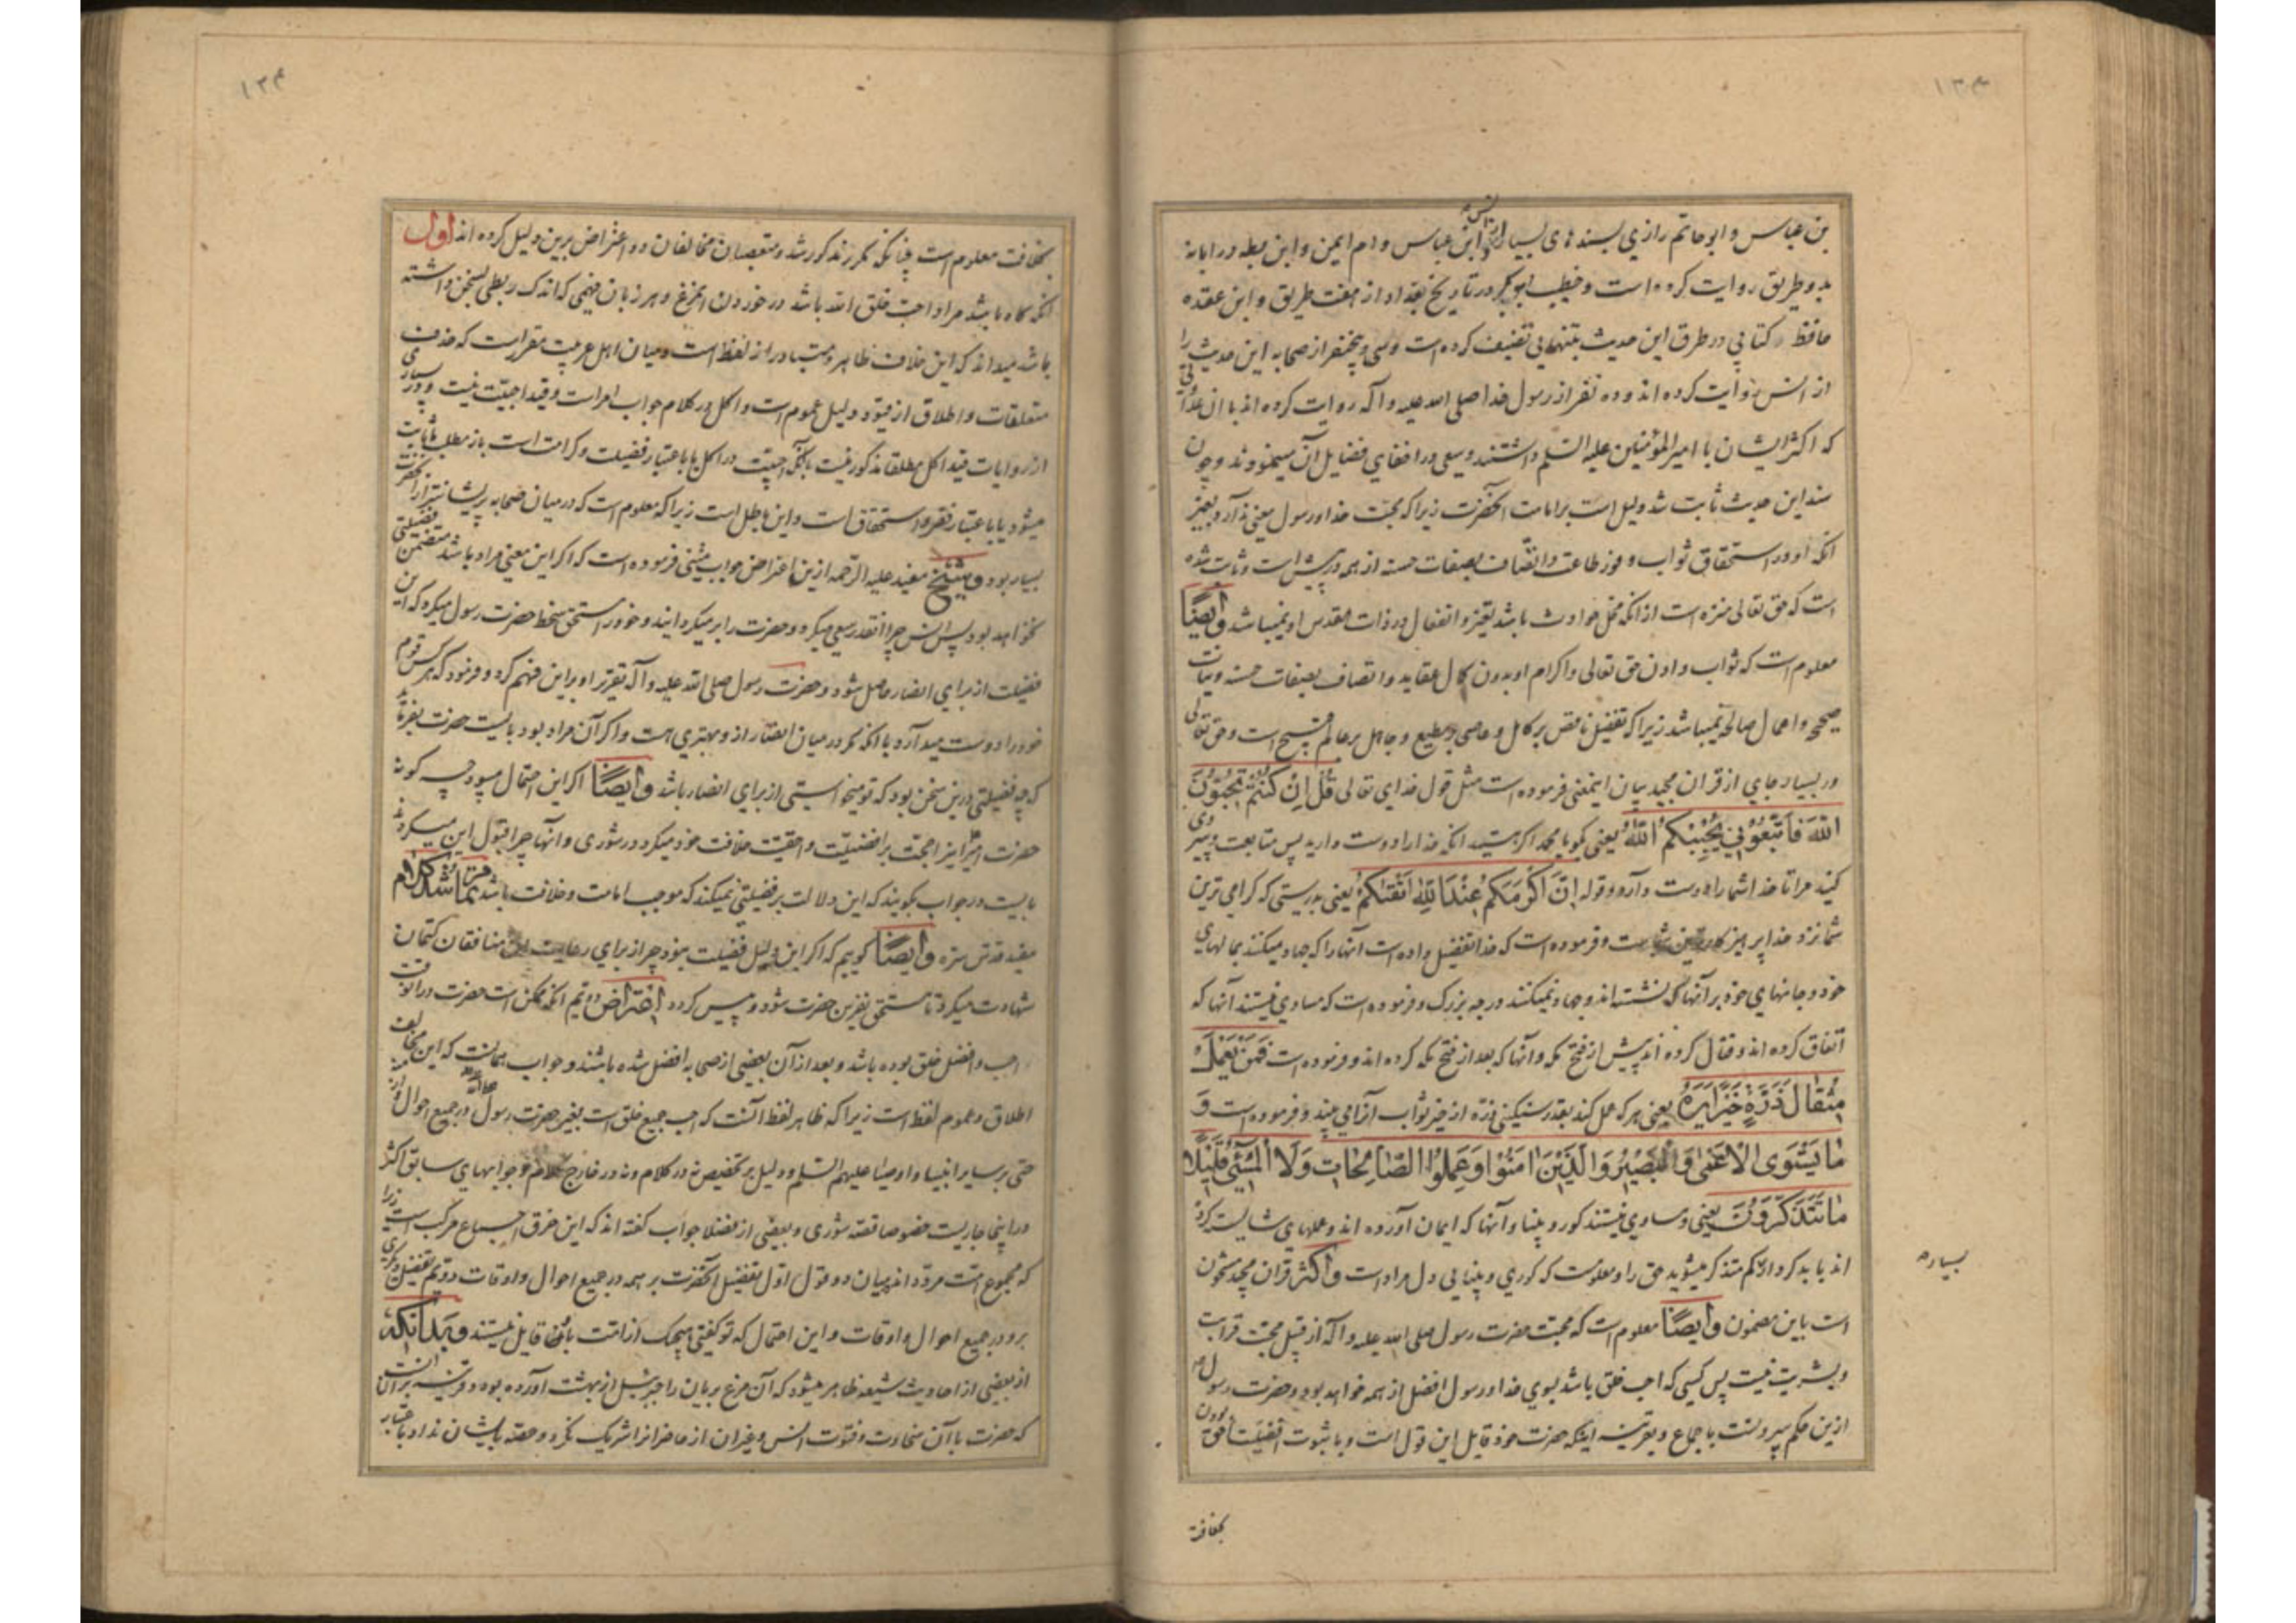 ۱۳۴
بن عباس و ابو حاتم رازی بسندهای بسیار از انس و ابن عباس و ام ایمن و ابن بطه در ابانه
بدو طریق روایت کرده است و خطیب ابو بکر در تاریخ بغداد از هفت طریق و ابن عقده
حافظ کتابی در طرق این حدیث بتنهایی تصنیف کرده است و سی و پنج نفر از صحابه این حدیث را
از انس روایت کرده اند و ده نفر از رسول خدا صلی الله علیه و آله روایت کرده اند با ان عداوتی
که اکثر ایشان با امیر المؤمنین علیه السلم داشتند و سعی در اخفای فضایل آن مینمودند و چون
سند این حدیث ثابت شد دلیل است بر امامت آنحضرت زیرا که محبت خدا و رسول معنی ندارد بغیر
انکه او در استحقاق ثواب و وفور طاعت و اتصاف بصفات حسنه از همه در پیش است و ثابت شده
است که حق تعالی منزه است از انکه محل حوادث باشد و تغیر و انفعال در ذات مقدس او نمیباشد و ایضًا
معلوم است که ثواب دادن حق تعالی و اکرام او بدون کمال عقاید و اتصاف بصفات حسنه و نیات
صحیحه و اعمال صالحه نمیباشد زیرا که تفضیل ناقص بر کامل و عاصی بر مطیع و جاهل بر عالم قبیح است و حق تعالی
در بسیار جای از قران مجید بیان اینمعنی فرموده است مثل قول خدای تعالی قُلْ اِنْ كُنْتُمْ تُحِبُّوْنَ
اللّٰهَ فَاتَّبِعُوْنِي يُحْبِبْكُمُ اللّٰهُ یعنی بکو یا محمد اکر هستید انکه خدا را دوست دارید پس متابعت و پیروی
کنید مرا تا خدا شما را دوست دارد و قوله اِنَّ اَكْرَمَكُمْ عِنْدَ اللّٰهِ اَتْقٰىكُمْ یعنی بدرستی که کرامی ترین
شما نزد خدا پرهیزکارترین شماست و فرموده است که خدا تفضیل داده است آنها را که جهاد میکنند بمالهای
خود و جانهای خود بر آنها که نشسته اند و جهاد نمیکنند درجه بزرک و فرموده است که مساوی نیستند آنها که
انفاق کرده اند و قتال کرده اند پیش از فتح مکه و آنها که بعد از فتح مکه کرده اند و فرموده است فَمَنْ يَعْمَلْ
مِثْقَالَ ذَرَّةٍ خَيْرًا يَرَهُ یعنی هر که عمل کند بقدر سنکینی ذره از خیر ثواب آنرا می بیند و فرموده است وَ
مَا يَسْتَوِى الْاَعْمٰى وَالْبَصِيْرُ وَالَّذِيْنَ اٰمَنُوْا وَعَمِلُوا الصَّالِحَاتِ وَلَا الْمُسِيْٓئُ قَلِيْلًا
مَا تَتَذَكَّرُوْنَ یعنی و مساوی نیستند کور و بینا و آنها که ایمان آورده اند و عملهای شایسته کرده
اند با بدکردار کم متذکر میشوید حق را و معلومست که کوری و بینایی دل مراد است و اکثر قران مجید مشحون
بسیاره
است باین مضمون و ایضًا معلوم است که محبت حضرت رسول صلی الله علیه و آله از قبیل محبت قرابت
و بشریت نیست پس کسی که احب خلق باشد بسوی خدا و رسول افضل از همه خواهد بود و حضرت رسول
ازین حکم بیرونست باجماع و بقرینه اینکه حضرت خود قایل این قول است و با ثبوت افضلیت احق بودن
بخلافت
۱۳۴
بخلافت معلوم است چنانکه مکرر مذکور شد و متعصبان مخالفان دو اعتراض برین دلیل کرده اند اول
انکه کاه باشد مراد احب خلق الله باشد در خوردن این مرغ و هر زبان فهمی که اندک ربطی بسخن داشته
باشد میداند که این خلاف ظاهر و متبادر از لفظ است و میان اهل عربیت مقرر است که حذف
متعلقات و اطلاق از قیود دلیل عموم است و اکل در کلام جواب امر است و قید احبیت نیست و در بسیاری
از روایات قید اکل مطلقا مذکور نیست با آنکه احبیت در اکل یا باعتبار فضیلت و کرامت است باز مطلب ما ثابت
میشود یا باعتبار فقر و استحقاق است و این باطل است زیرا که معلوم است که در میان صحابه پریشانتر از آنحضرت
بسیار بود و شیخ مفید علیه الرحمه ازین اعتراض جواب متینی فرموده است که اکر این معنی مراد باشد متضمن فضیلتی
نخواهد بود پس انس چرا انقدر سعی میکرد و حضرت را بر میکردانید و خود را مستحق سخط حضرت رسول میکرد که این
فضیلت از برای انصار حاصل شود و حضرت رسول صلی الله علیه و آله تقریر او بر این فهم کرد و فرمود که هر کس قوم
خود را دوست میدارد با انکه مکر در میان انصار از و بهتری هست و اکر آن مراد بود بایست حضرت بفرماید
که چه فضیلتی درین سخن بود که تو میخواستی از برای انصار باشد و ایضًا اکر این احتمال میبود چه کونه
حضرت امیر اینرا حجت بر افضلیت و احقیت خلافت خود میکرد در شوری و آنها چرا قبول این میکردند
بایست در جواب بکویند که این دلالت بر فضیلتی نمیکند که موجب امامت و خلافت باشد تمام شد کلام
مفید قدس سره و ایضًا کوییم که اکر این دلیل فضیلت نبود چرا از برای رعایت این منافقان کتمان
شهادت میکرد تا مستحق نفرین حضرت شود و پیس کردد اعتراض دویم انکه ممکن است حضرت درانوقت
احب و افضل خلق بوده باشد و بعد از آن بعضی از صحابه افضل شده باشند و جواب همانست که این مخالف
اطلاق و عموم لفظ است زیرا که ظاهر لفظ آنست که احب جمیع خلق است بغیر حضرت رسول در جمیع احوال
حتی بر سایر انبیا و اوصیا علیهم السلم و دلیل بر تخصیص نه در کلام و نه در خارج کلام و جوابهای سابق اکثر
در اینجا جاریست خصوصا قصه شوری و بعضی از فضلا جواب کفته اند که این خرق اجماع مرکب است زیرا
که مجموع امت مرددند میان دو قول اول تفضیل آنحضرت بر همه در جمیع احوال و اوقات دویم تفضیل دیکری
برو در جمیع احوال و اوقات و این احتمال که تو کفتی هیچیک از امت بآن قایل نیستند و بدانکه
از بعضی از احادیث شیعه ظاهر میشود که آن مرغ بریان را جبرئیل از بهشت آورده بود و قرینه بر آن انست
که حضرت با آن سخاوت و فتوت انس و غیر ان از حاضران را شریک نکرد و حصه بایشان نداد باعتبار